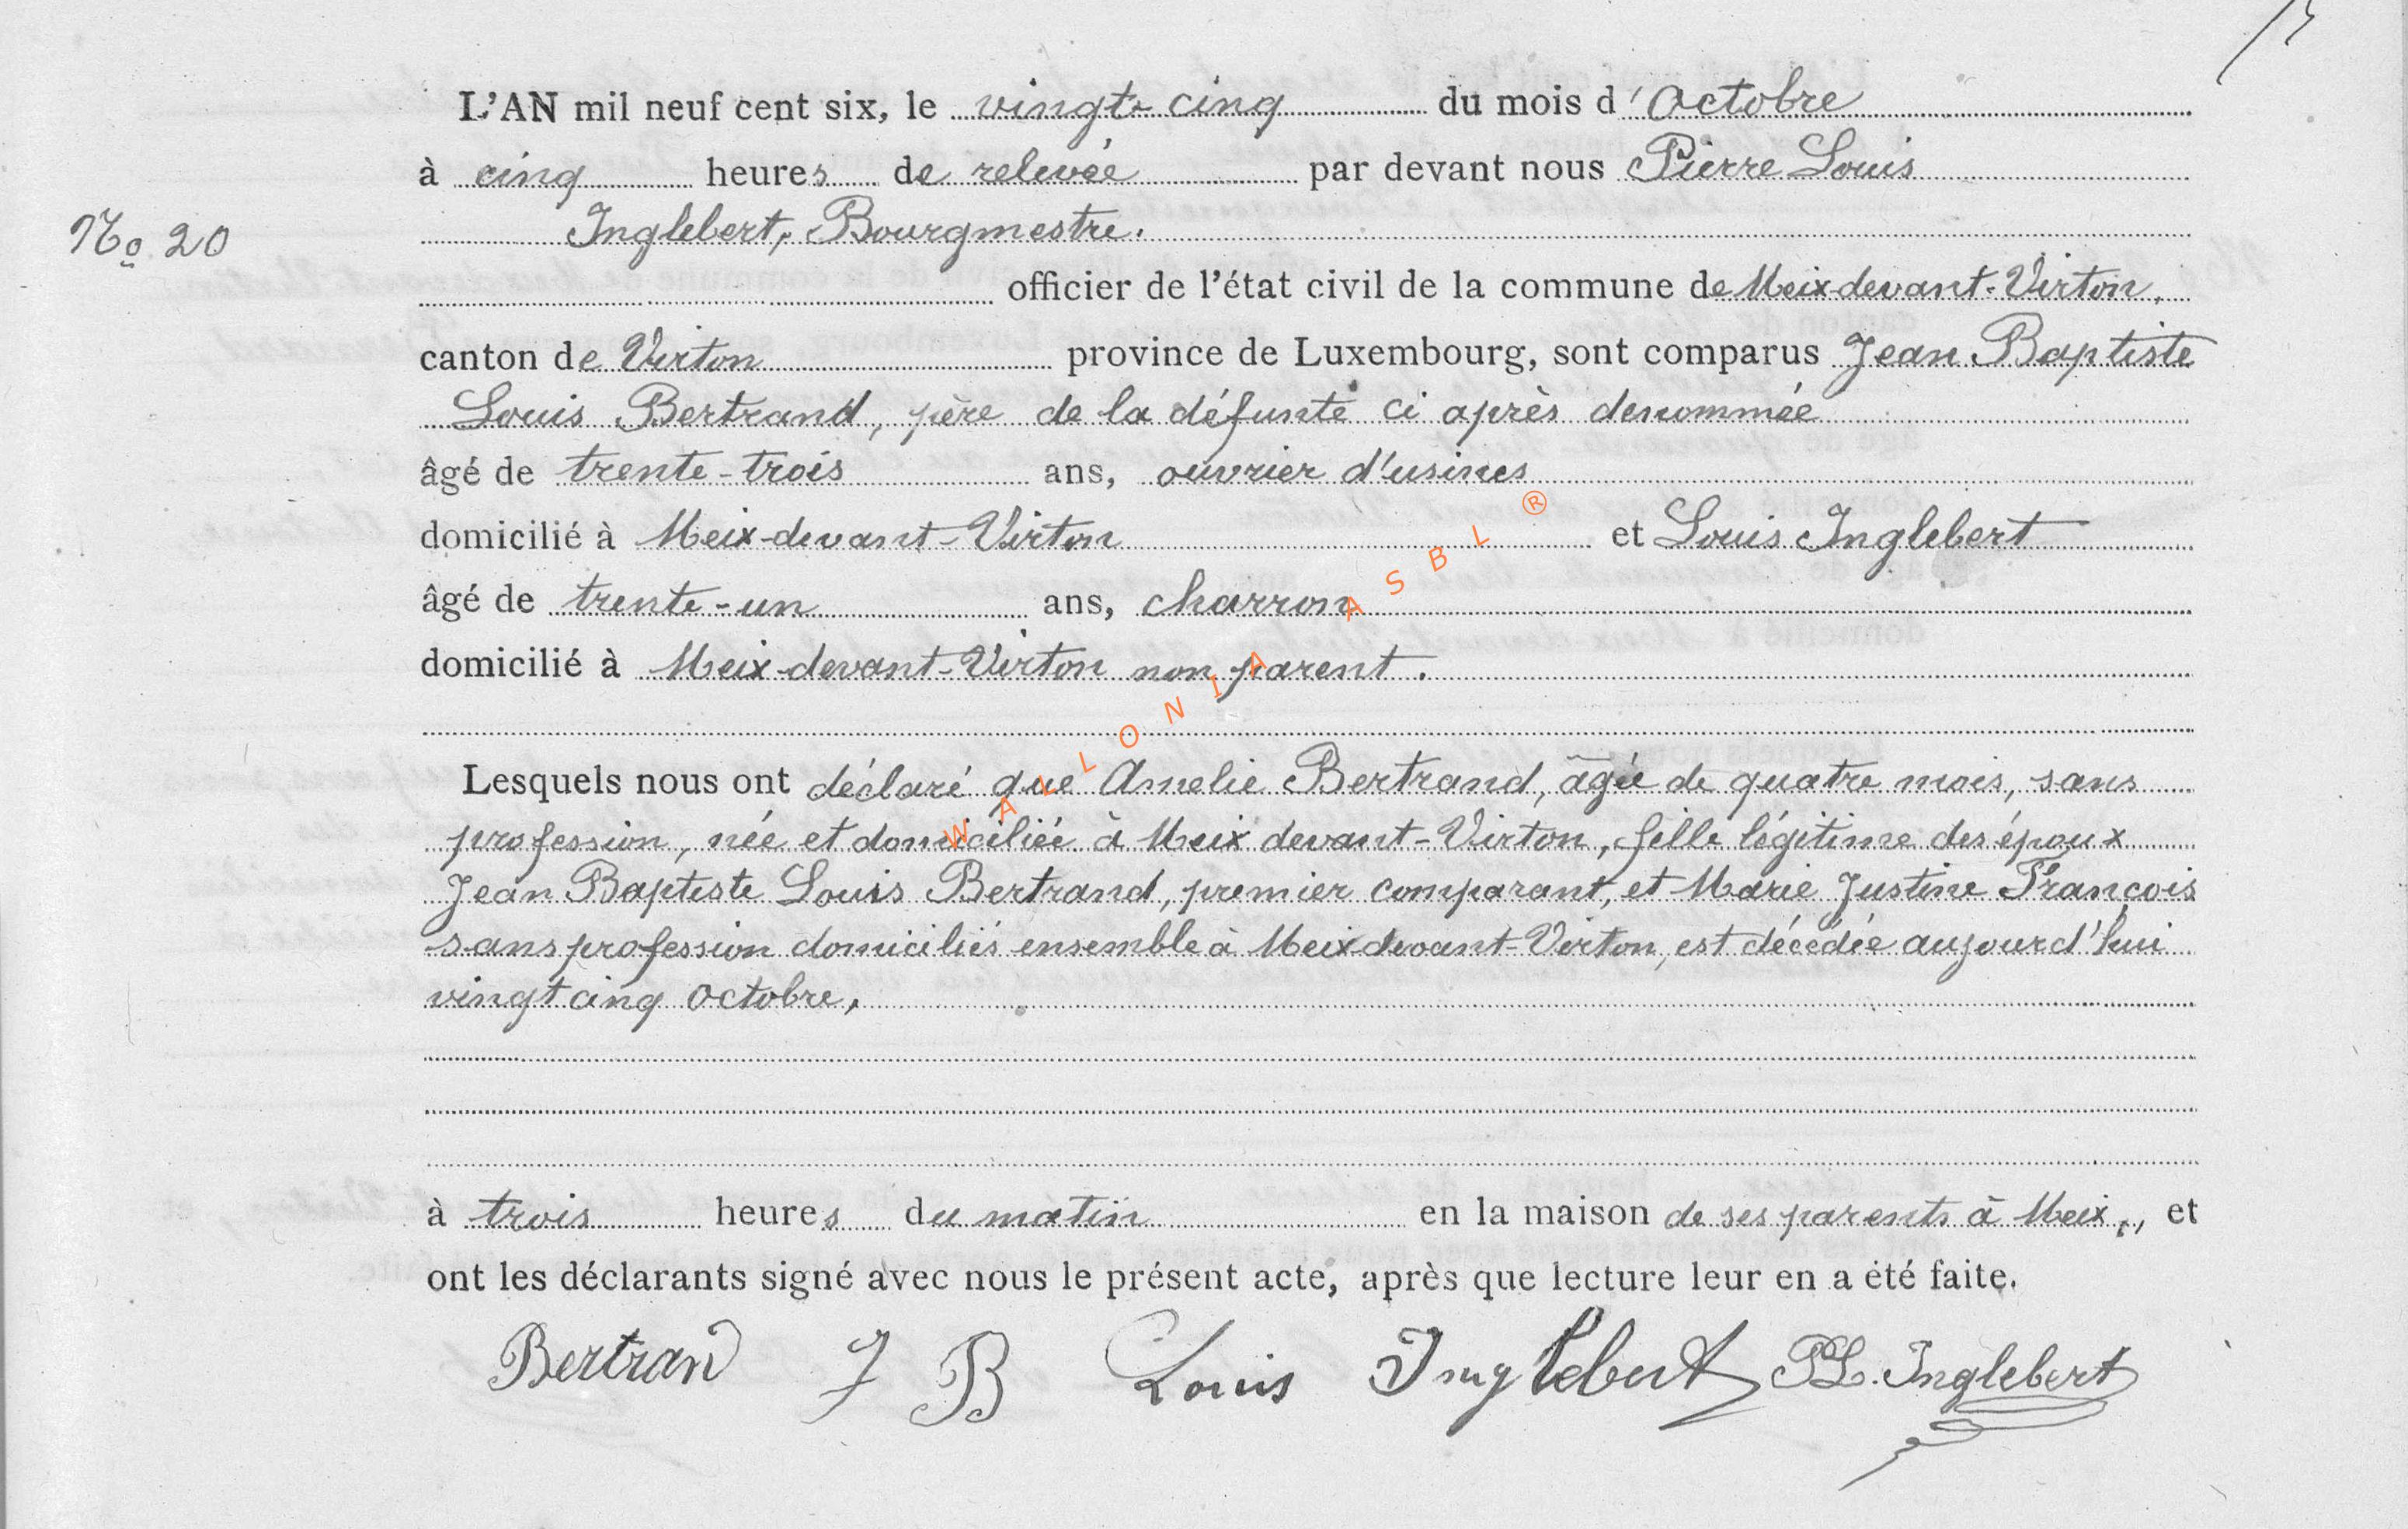 L'AN mil neuf cent six, le vingt-cinq du mois d'Octobre
à cinq heures de relevée par devant nous Pierre Louis
No 20
Inglebert, Bourgmestre.
officier de l'état civil de la commune de Meix-devant-Virton,
canton de Virton province de Luxembourg, sont comparus Jean Baptiste
Louis Bertrand, père de la défunte ci après denommée
âgé de trente-trois ans, ouvrier d'usines
domicilié à Meix-devant-Virton et Louis Inglebert
âgé de trente-un ans, charron
domicilié à Meix-devant-Virton non parent.
Lesquels nous ont déclaré que Amelie Bertrand, âgée de quatre mois, sans
profession, née et domiciliée à Meix devant-Virton, fille légitime des époux
Jean Baptiste Louis Bertrand, premier comparant, et Marie Justine François
sans profession domiciliés ensemble à Meix devant-Virton, est décédée aujourd'hui
vingt cinq octobre,
à trois heures du matin en la maison de ses parents à Meix,, et
ont les déclarants signé avec nous le présent acte, après que lecture leur en a été faite.
Bertrand J B Louis Inglebert PL. Inglebert
WALLONIA ASBL ®